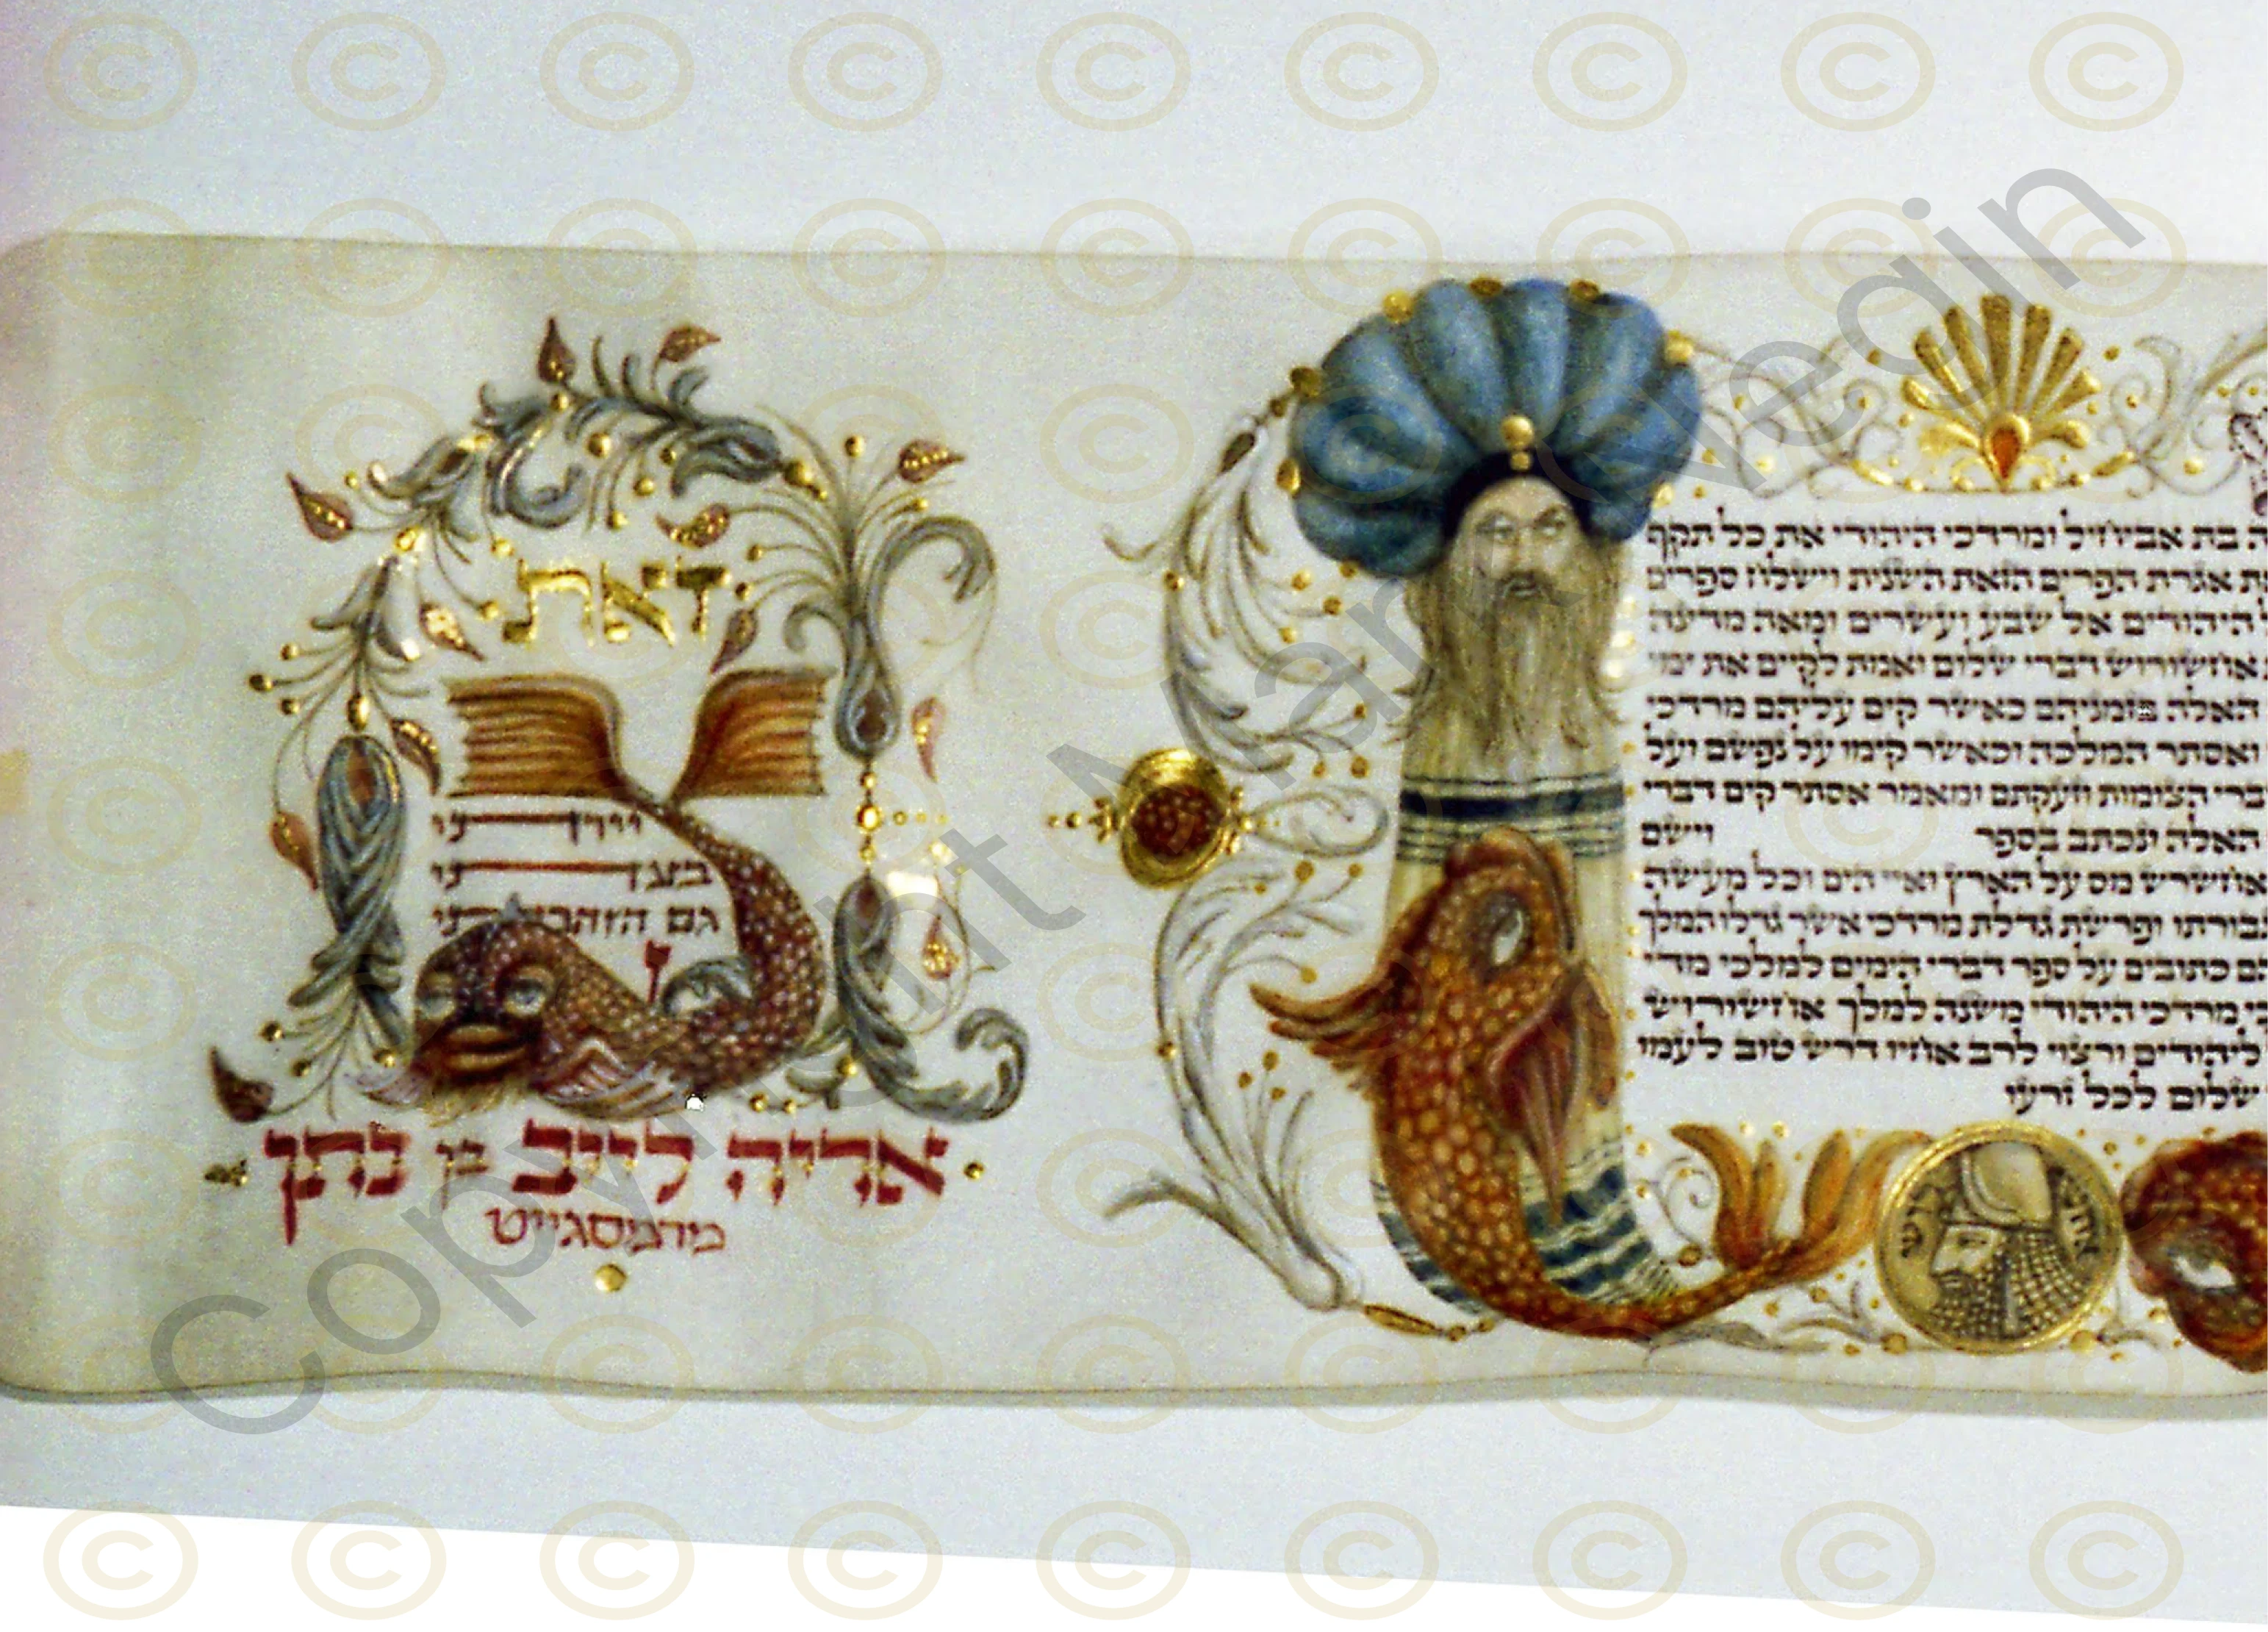 ה בת אביחיל ומרדכי היהודי את כל תקף
ת אגרת הפרים הזאת השנית וישלח ספרים
היהודים אל שבע ועשרים ומאה מדינה
אחשורוש דברי שלום ואמת לקים את ימי
האלה בזמניהם כאשר קים עליהם מרדכי
ואסתר המלכה וכאשר קימו על נפשם ועל
דברי הצומות וזעקתם ומאמר אסתר קים דברי
האלה ונכתב בספר וישם
אחשרש מס על הארץ ואיי הים וכל מעשה
גבורתו ופרשת גדלת מרדכי אשר גדלו המלך
הם כתובים על ספר דברי הימים למלכי מדי
י מרדכי היהודי משנה למלך אחשורוש
ליהודים ורצוי לרב אחיו דרש טוב לעמו
שלום לכל זרעו
זאת
גם
אריה לייב בן נתן
מרמסגייט
Copyright Mark Negin